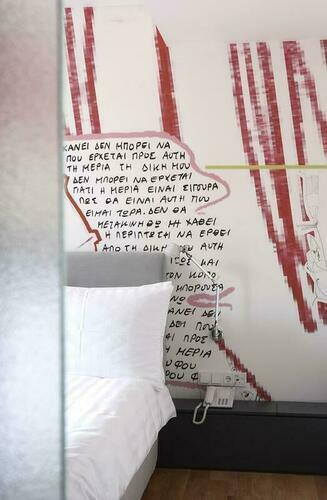 ΚΑΝΕΙ ΔΕΝ ΜΠΟΡΕΙ ΝΑ
ΠΟΥ ΕΡΧΕΤΑΙ ΠΡΟΣ ΑΥΤΗ
ΤΗ ΜΕΡΙΑ ΤΗ ΔΙΚΗ ΜΟΥ
ΔΕΝ ΜΠΟΡΕΙ ΝΑ ΕΡΧΕΤΑΙ
ΓΙΑΤΙ Η ΜΕΡΙΑ ΕΙΝΑΙ ΣΙΓΟΥΡΑ
ΠΩΣ ΘΑ ΕΙΝΑΙ ΑΥΤΗ ΠΟΥ
ΕΙΜΑΙ ΤΩΡΑ. ΔΕΝ ΘΑ
ΜΕΤΑΚΙΝΗΘΩ ΜΗ ΧΑΘΕΙ
Η ΠΕΡΙΠΤΩΣΗ ΝΑ ΕΡΘΕΙ
ΑΠΟ ΤΗ ΔΙΚΗ ΜΟΥ ΑΥΤΗ
ΚΑΙ
ΤΟΝ ΚΟΠΟ
ΜΠΟΡΟΥΣΑ
ΚΑΝΕΙ ΔΕΝ
ΔΕΙ ΠΟΥ
ΑΙ ΠΡΟΣ
Η ΜΕΡΙΑ
ΡΟΥ ΦΟΥ